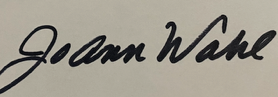 JoAnn Wahl